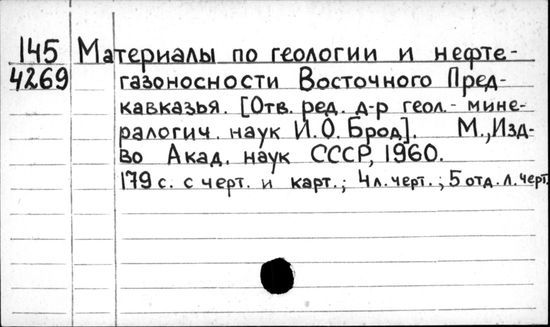 145 Материалы по геологии и нефте-
4269 газоносности Восточного Пред-
кавказья. [Отв. ред. д-р геол.- мине-
ралогич. наук И.О. Брод]. М., Изд-
во Акад. наук СССР, 1960.
179 с. с черт. и карт.; 4 л. черт.; 5 отд. л. черт.